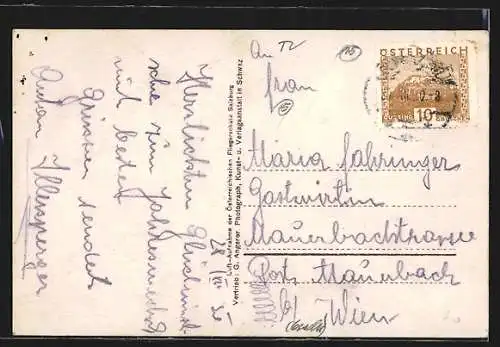 Herzlichsten Glückwunsch
sche zum Jahreswechsel
und besten
Grüssen sendet
Anton
28/XII 30
Luft-Aufnahme der Österreichischen Fliegerschule Salzburg
Vertrieb: G. Angerer Photograph, Kunst- u. Verlagsanstalt in Schwaz
An
Frau
Maria Fahringer
Gastwirtin
Mauerbachstrasse
Post Mauerbach
b/ Wien
ÖSTERREICH
10
GÜSSING